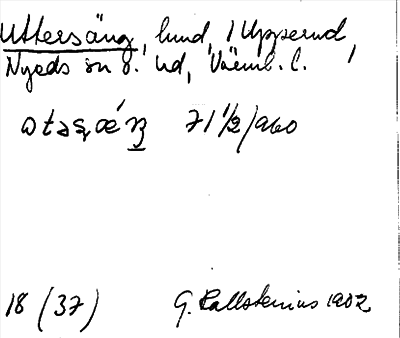 Uttersäng, lund, 1 Uppernud,
Nyeds sn o. hd, Värml. l.
71 1/2/960
18 (37) G. Kallstenius 1902